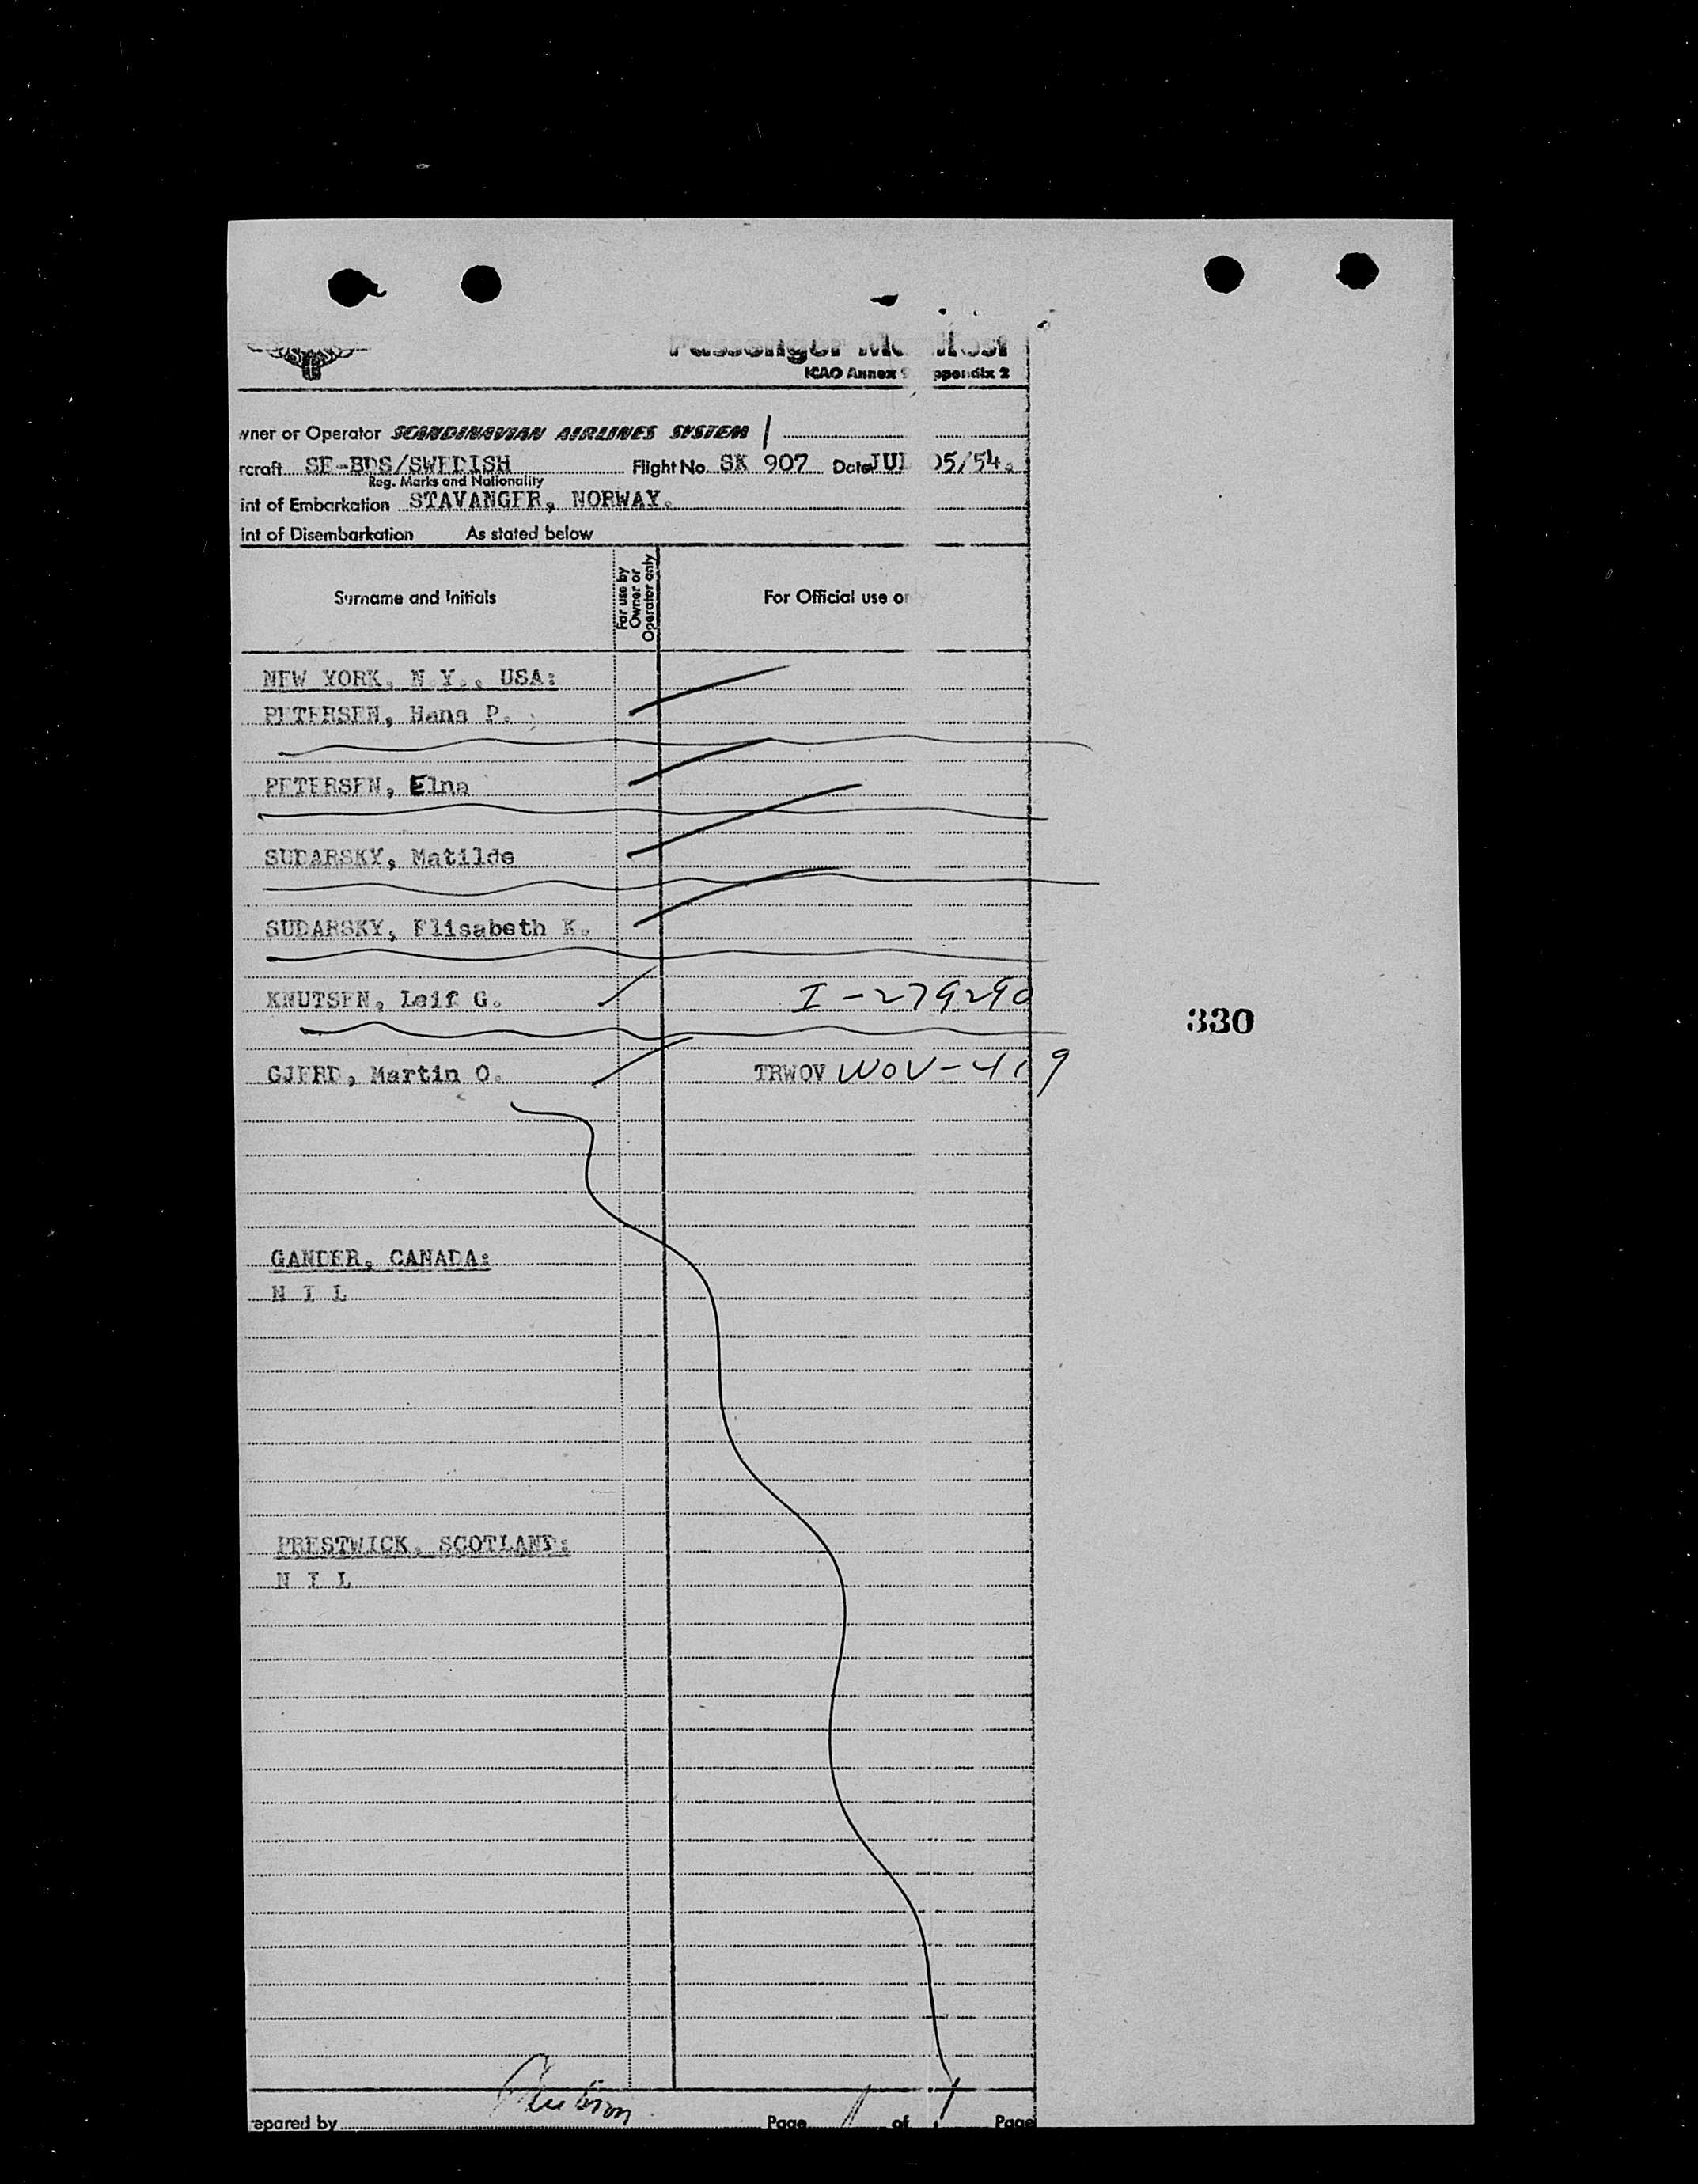 SAS
Passenger Ma ifest
ICAO Annex 9 ppendix 2
wner or Operator SCANDINAVIAN AIRLINES SYSTEM
rcraft SE-BDS/SWEDISH Flight No. SK 907 Date JUL 05/54.
Reg. Marks and Nationality
int of Embarkation STAVANGER, NORWAY.
int of Disembarkation As stated below
Surname and Initials
For use by Owner or Operator only
For Official use only
NEW YORK, N.Y., USA:
PETERSEN, Hans P.
PETERSEN, Elna
SUDARSKY, Matilde
SUDARSKY, Elisabeth K.
KNUTSEN, Leif G. I-279290
330
GJERD, Martin O. TRWOV WOV-419
GANDER, CANADA:
N I L
PRESTWICK, SCOTLAND:
N I L
epared by Page 1 of 1 Page